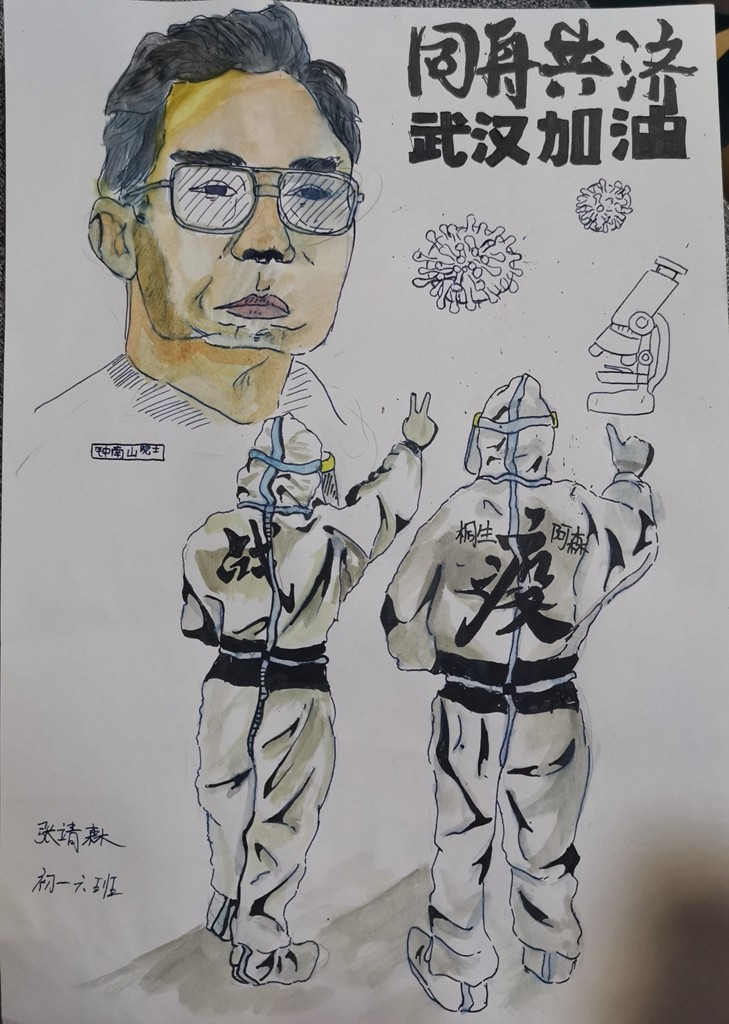 同舟共济
武汉加油
钟南山院士
战
桐生 阿森
疫
张靖森
初一六班